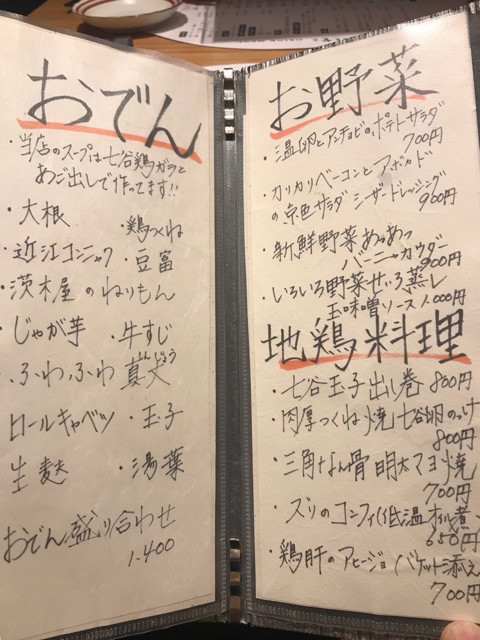 おでん
・当店のスープは七谷鶏ガラと
あご出しで作ってます!!
・大根
・鶏つくね
・近江コンニャク
・豆富
・茨木屋のねりもん
・じゃが芋
・牛すじ
・ふわふわ真丈
しんじょう
・ロールキャベツ
・玉子
・生麩
・湯葉
おでん盛り合わせ
1.400
お野菜
・温卵とアンチョビのポテトサラダ
700円
・カリカリベーコンとアボカド
の京色サラダ シーザードレッシング
900円
・新鮮野菜あつあつ
バーニャカウダー
900円
・いろいろ野菜せいろ蒸し
玉味噌ソース1.000円
地鶏料理
・七谷玉子出し巻 800円
・肉厚つくね焼 七谷卵のっけ
800円
・三角なん骨明太マヨ焼
700円
・ズリのコンフィ(低温オイル煮)
650円
・鶏肝のアヒージョ(バゲット添え
700円